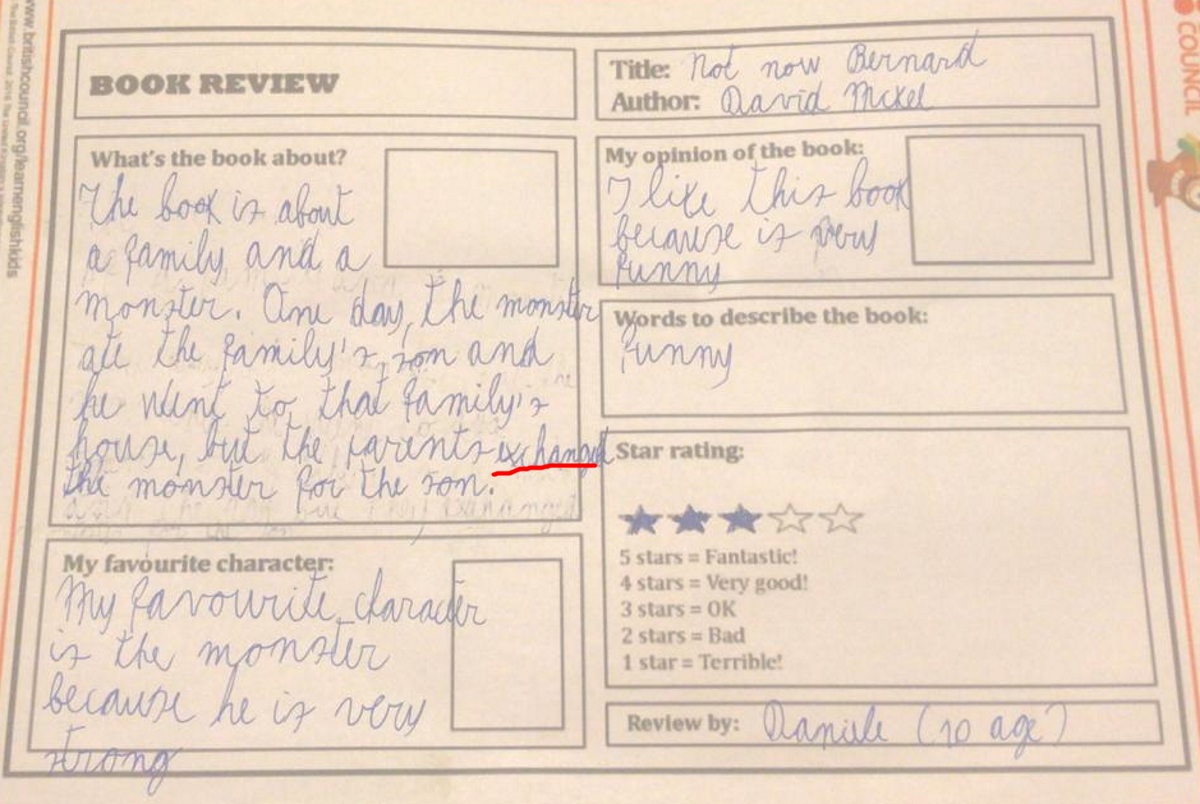 www.britishcouncil.org/learnenglishkids
COUNCIL
BOOK REVIEW
Title: Not now Bernard
Author: David Mckel
What's the book about?
The book is about
a family and a
monster. One day, the monster
ate the family's son and
he went to that family's
house, but the parents exchanged
the monster for the son.
My favourite character:
My favourite character
is the monster
because he is very
strong
My opinion of the book:
I like this book
because is very
funny
Words to describe the book:
funny
Star rating:
5 stars = Fantastic!
4 stars = Very good!
3 stars = OK
2 stars = Bad
1 star = Terrible!
Review by: Daniele (10 age)